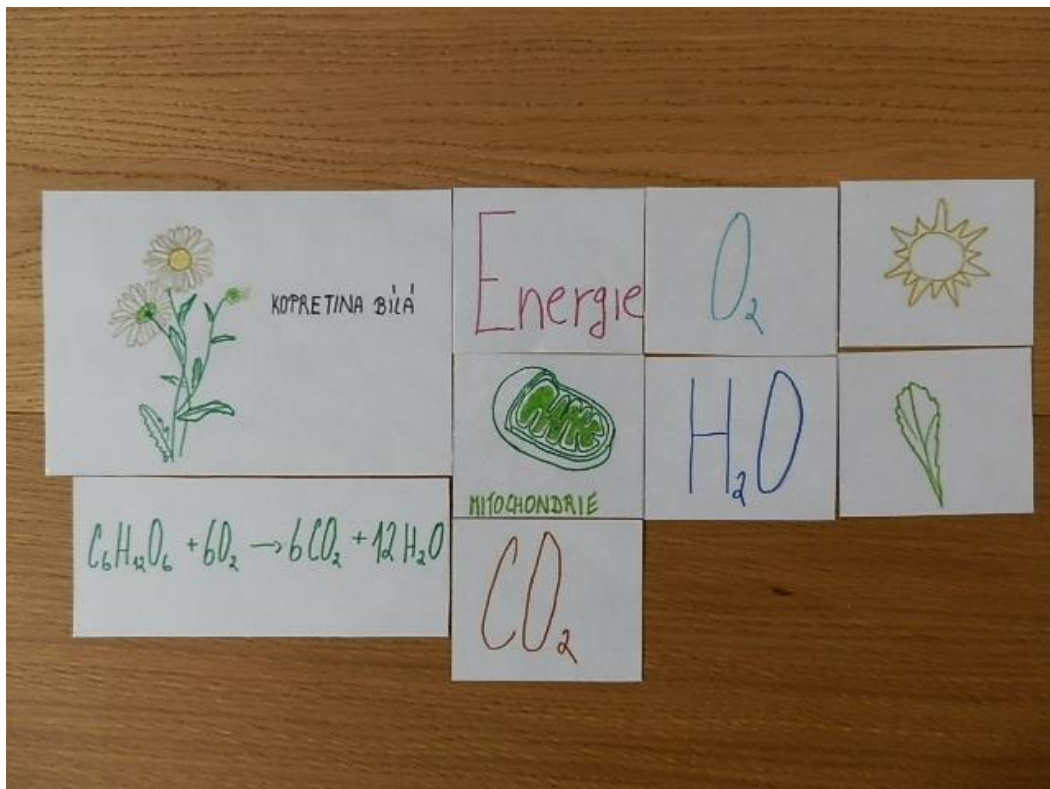 KOPRETINA BÍLÁ
Energie
O₂
MITOCHONDRIE
H₂O
C₆H₁₂O₆ + 6O₂ → 6CO₂ + 12H₂O
CO₂